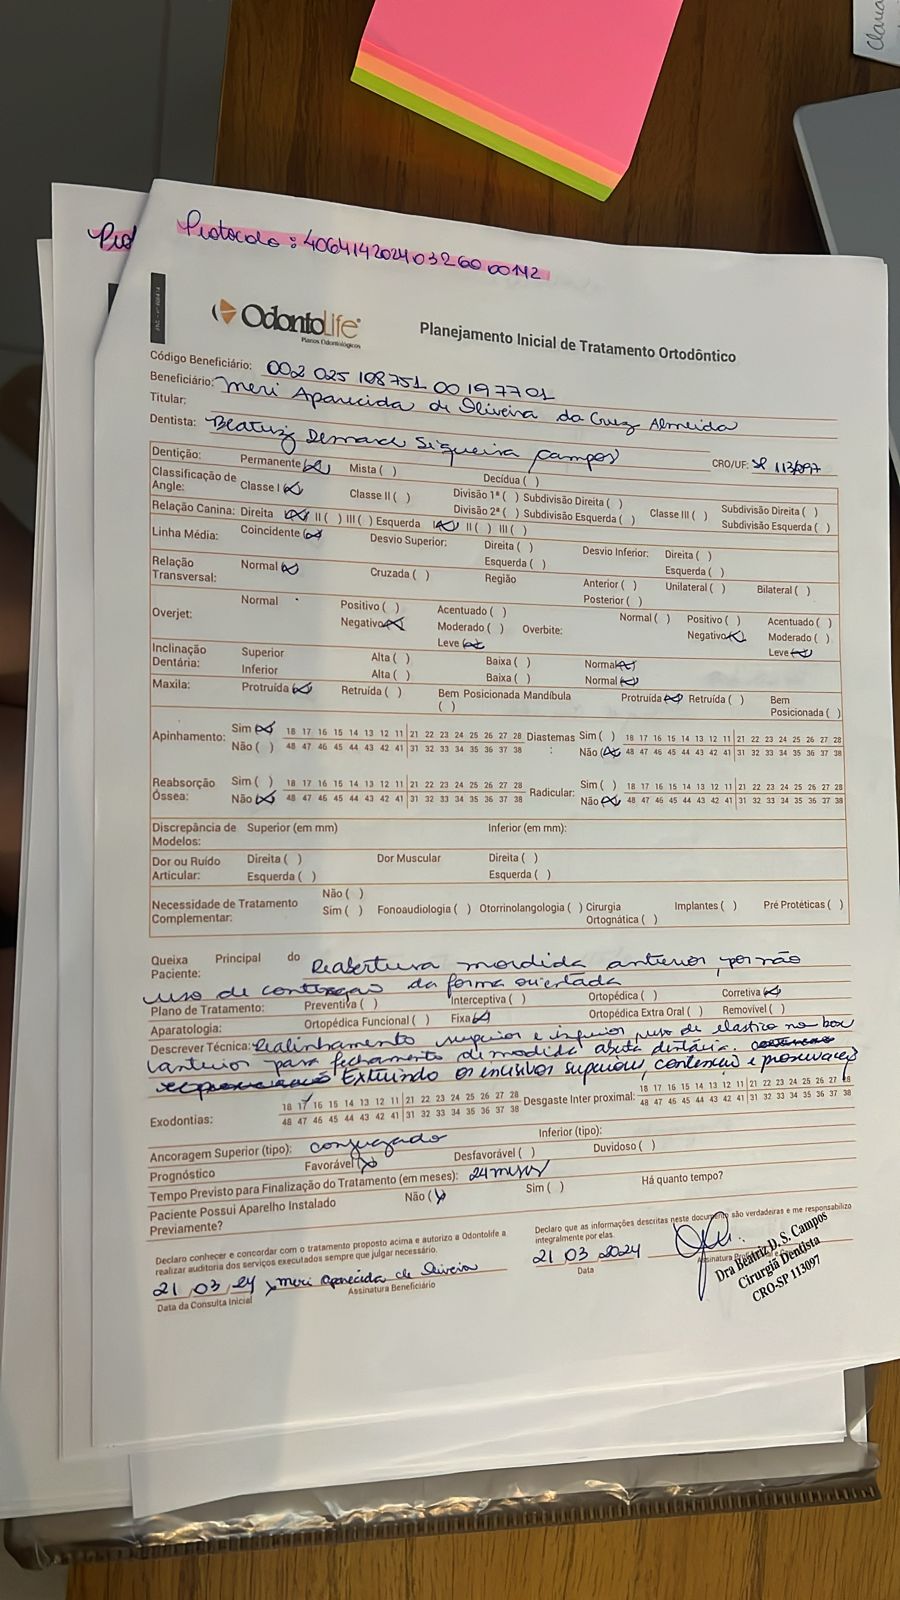 Clara
Prot
Protocolo: 406414202403260 00142
OdontoLife
Planos Odontológicos
Planejamento Inicial de Tratamento Ortodôntico
Código Beneficiário: 002 025 108751 00 197701
Beneficiário: Meri Aparecida de Oliveira da Cruz Almeida
Titular:
Dentista: Beatriz Demarc Siqueira Campos CRO/UF: SP 113/097
Dentição: Permanente (x) Mista ( ) Decídua ( )
Classificação de Angle: Classe I (x) Classe II ( ) Divisão 1ª ( ) Subdivisão Direita ( ) Divisão 2ª ( ) Subdivisão Esquerda ( ) Classe III ( ) Subdivisão Direita ( ) Subdivisão Esquerda ( )
Relação Canina: Direita I(x) II ( ) III ( ) Esquerda I(x) II ( ) III ( )
Linha Média: Coincidente (x) Desvio Superior: Direita ( ) Esquerda ( ) Desvio Inferior: Direita ( ) Esquerda ( )
Relação Transversal: Normal (x) Cruzada ( ) Região Anterior ( ) Posterior ( ) Unilateral ( ) Bilateral ( )
Overjet: Normal Positivo ( ) Negativo (x) Acentuado ( ) Moderado ( ) Leve (x) Overbite: Normal ( ) Positivo ( ) Negativo (x) Acentuado ( ) Moderado ( ) Leve (x)
Inclinação Dentária: Superior Alta ( ) Baixa ( ) Normal (x)
Inferior Alta ( ) Baixa ( ) Normal (x)
Maxila: Protruída (x) Retruída ( ) Bem Posicionada ( ) Mandíbula Protruída (x) Retruída ( ) Bem Posicionada ( )
Apinhamento: Sim (x) 18 17 16 15 14 13 12 11 21 22 23 24 25 26 27 28 Diastemas : Sim ( ) 18 17 16 15 14 13 12 11 21 22 23 24 25 26 27 28
Não ( ) 48 47 46 45 44 43 42 41 31 32 33 34 35 36 37 38 Não (x) 48 47 46 45 44 43 42 41 31 32 33 34 35 36 37 38
Reabsorção Óssea: Sim ( ) 18 17 16 15 14 13 12 11 21 22 23 24 25 26 27 28 Radicular: Sim ( ) 18 17 16 15 14 13 12 11 21 22 23 24 25 26 27 28
Não (x) 48 47 46 45 44 43 42 41 31 32 33 34 35 36 37 38 Não (x) 48 47 46 45 44 43 42 41 31 32 33 34 35 36 37 38
Discrepância de Modelos: Superior (em mm) Inferior (em mm):
Dor ou Ruído Articular: Direita ( ) Esquerda ( ) Dor Muscular Direita ( ) Esquerda ( )
Necessidade de Tratamento Complementar: Não ( ) Sim ( ) Fonoaudiologia ( ) Otorrinolangologia ( ) Cirurgia Ortognática ( ) Implantes ( ) Pré Protéticas ( )
Queixa Principal do Paciente: Reabertura mordida anterior, por não
uso de contenção da forma orientada
Plano de Tratamento: Preventiva ( ) Interceptiva ( ) Ortopédica ( ) Corretiva (x)
Aparatologia: Ortopédica Funcional ( ) Fixa (x) Ortopédica Extra Oral ( ) Removível ( )
Descrever Técnica: Realinhamento superior e inferior, uso de elastico no box
(anterior para fechamento de mordida aberta
Extruindo os incisivos superiores, contenção e
Exodontias: 18 17 16 15 14 13 12 11 21 22 23 24 25 26 27 28 Desgaste Inter proximal: 18 17 16 15 14 13 12 11 21 22 23 24 25 26 27 28
48 47 46 45 44 43 42 41 31 32 33 34 35 36 37 38 48 47 46 45 44 43 42 41 31 32 33 34 35 36 37 38
Ancoragem Superior (tipo): conjugado Inferior (tipo):
Prognóstico Favorável (x) Desfavorável ( ) Duvidoso ( )
Tempo Previsto para Finalização do Tratamento (em meses): 24 meses
Paciente Possui Aparelho Instalado Previamente? Não (x) Sim ( ) Há quanto tempo?
Declaro conhecer e concordar com o tratamento proposto acima e autorizo a Odontolife a
realizar auditoria dos serviços executados sempre que julgar necessário.
21 03 24 Meri Aparecida de Oliveira
Data da Consulta Inicial Assinatura Beneficiário
Declaro que as informações descritas neste documento são verdadeiras e me responsabilizo
integralmente por elas.
21 03 2024
Data
Dra Beatriz D. S. Campos
Cirurgiã Dentista
CRO-SP 113097